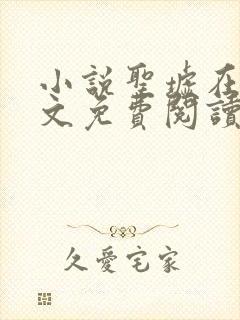 小說聖墟在
文免費閱讀
久愛宅家